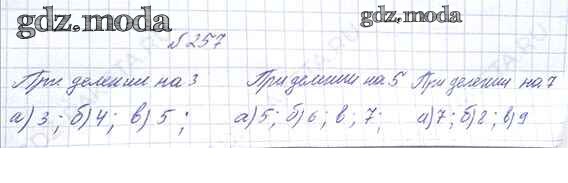 gdz.moda
gdz.moda
№257
При делении на 3 При делении на 5 При делении на 7
а) 3; б) 4; в) 5; а) 5; б) 6; в; 7; а) 7; б) 2; в) 9